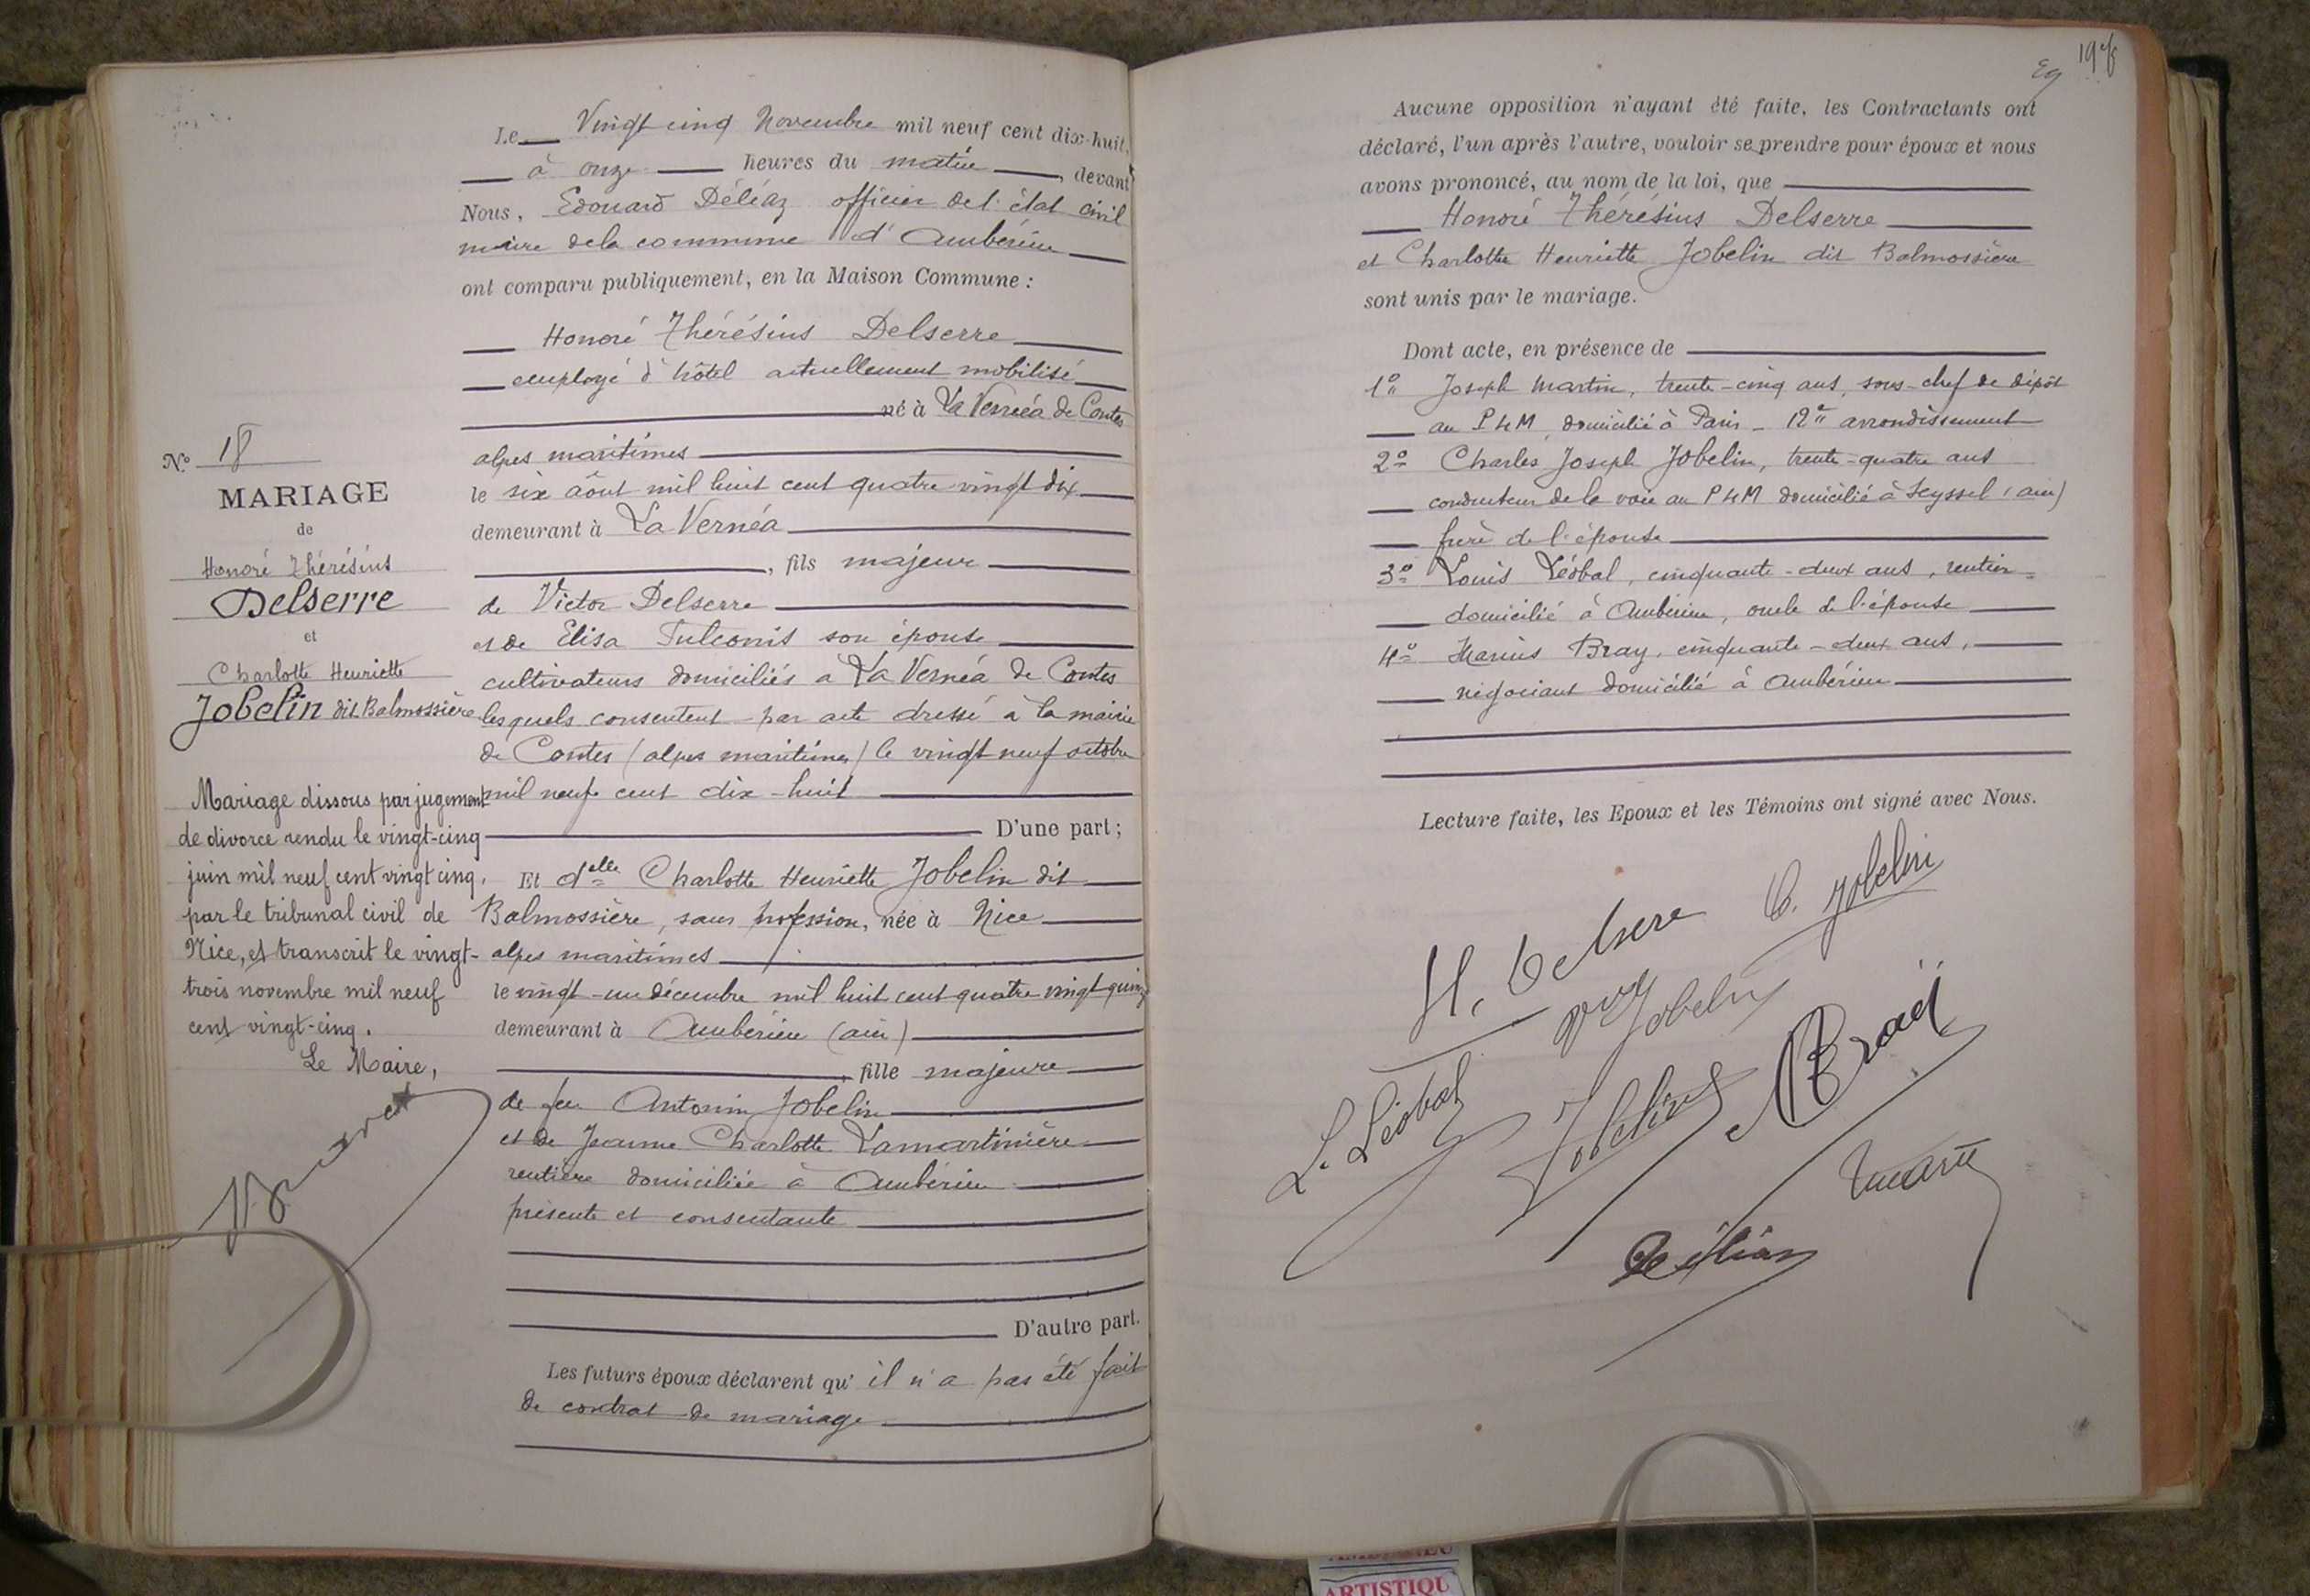 Le Vingt cinq Novembre mil neuf cent dix-huit,
à onze heures du matin, devant
Nous, Edouard Déléaz officier de l'état civil
maire de la commune d'Ambérieu
ont comparu publiquement, en la Maison Commune :
Honoré Thérésius Delserre
employé d'hôtel actuellement mobilisé
né à La Vernéa de Contes
alpes maritimes
le six août mil huit cent quatre-vingt dix
demeurant à La Vernéa
, fils majeur
de Victor Delserre
et de Elisa Fulconis son épouse
cultivateurs domiciliés a La Vernéa de Contes
lesquels consentent par acte dressé à la mairie
de Contes (alpes maritimes) le vingt neuf octobre
mil neuf cent dix-huit
D'une part ;
Et delle Charlotte Henriette Jobelin dit
Balmossière, sans profession, née à Nice
alpes maritimes
le vingt-un décembre mil huit cent quatre vingt quinze
demeurant à Ambérieu (ain)
, fille majeure
de feu Antonin Jobelin
et de Jeanne Charlotte Lamartinière
rentière domiciliée à Ambérieu
présente et consentante
D'autre part.
Les futurs époux déclarent qu' il n'a pas été fait
de contrat de mariage
N.o 18
MARIAGE
de
Honoré Thérésius
Delserre
et
Charlotte Henriette
Jobelin dit Balmossière
Mariage dissous par jugement
de divorce rendu le vingt-cinq
juin mil neuf cent vingt cinq.
par le tribunal civil de
Nice, et transcrit le vingt-
trois novembre mil neuf
cent vingt-cinq.
Le Maire,
Aucune opposition n'ayant été faite, les Contractants ont
déclaré, l'un après l'autre, vouloir se prendre pour époux et nous
avons prononcé, au nom de la loi, que
Honoré Thérésius Delserre
et Charlotte Henriette Jobelin dit Balmossière
sont unis par le mariage.
Dont acte, en présence de
1o Joseph Martin, trente-cinq ans, sous-chef de dépôt
au PLM, domicilié à Paris - 12e arrondissement
2o Charles Joseph Jobelin, trente-quatre ans
conducteur de la voie au PLM domicilié à Seyssel (ain)
frère de l'épouse
3o Louis Léobal, cinquante-deux ans, rentier
domicilié à Ambérieu, oncle de l'épouse
4o Marius Bray, cinquante-deux ans,
négociant domicilié à Ambérieu
Lecture faite, les Epoux et les Témoins ont signé avec Nous.
H. Delserre C. Jobelin
Vve Jobelin
L. Léobal Jobelin
Martin
Déléaz
ARTISTIQU